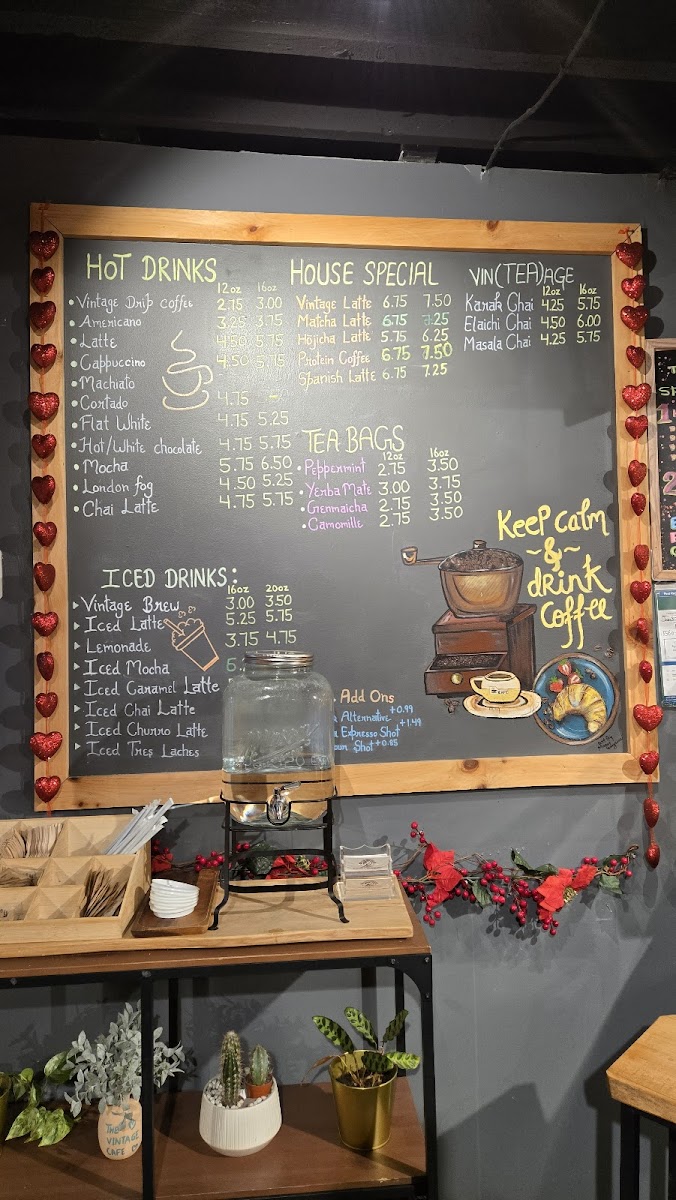 HOT DRINKS
12oz 16oz
• Vintage Drip Coffee 2.75 3.00
• Americano 3.25 3.75
• Latte 4.50 5.75
• Cappuccino 4.50 5.75
• Machiato
• Cortado 4.75 -
• Flat White 4.75 5.25
• Hot/White chocolate 4.75 5.75
• Mocha 5.75 6.50
• London fog 4.50 5.25
• Chai Latte 4.75 5.75
HOUSE SPECIAL
Vintage Latte 6.75 7.50
Matcha Latte 6.75 7.25
Hojicha Latte 5.75 6.25
Protein Coffee 6.75 7.50
Spanish Latte 6.75 7.25
VIN(TEA)AGE
12oz 16oz
Karak Chai 4.25 5.75
Elaichi Chai 4.50 6.00
Masala Chai 4.25 5.75
TEA BAGS
12oz 16oz
• Peppermint 2.75 3.50
• Yerba Mate 3.00 3.75
• Genmaicha 2.75 3.50
• Camomille 2.75 3.50
Keep calm
~&~
drink
coffee
ICED DRINKS:
16oz 20oz
Vintage Brew 3.00 3.50
Iced Latte 5.25 5.75
Lemonade 3.75 4.75
Iced Mocha
Iced Caramel Latte
Iced Chai Latte
Iced Churro Latte
Iced Tres Laches
Add Ons
Alternative +0.99
Expresso Shot +1.49
Shot +0.85
THE
VINTAGE
CAFE